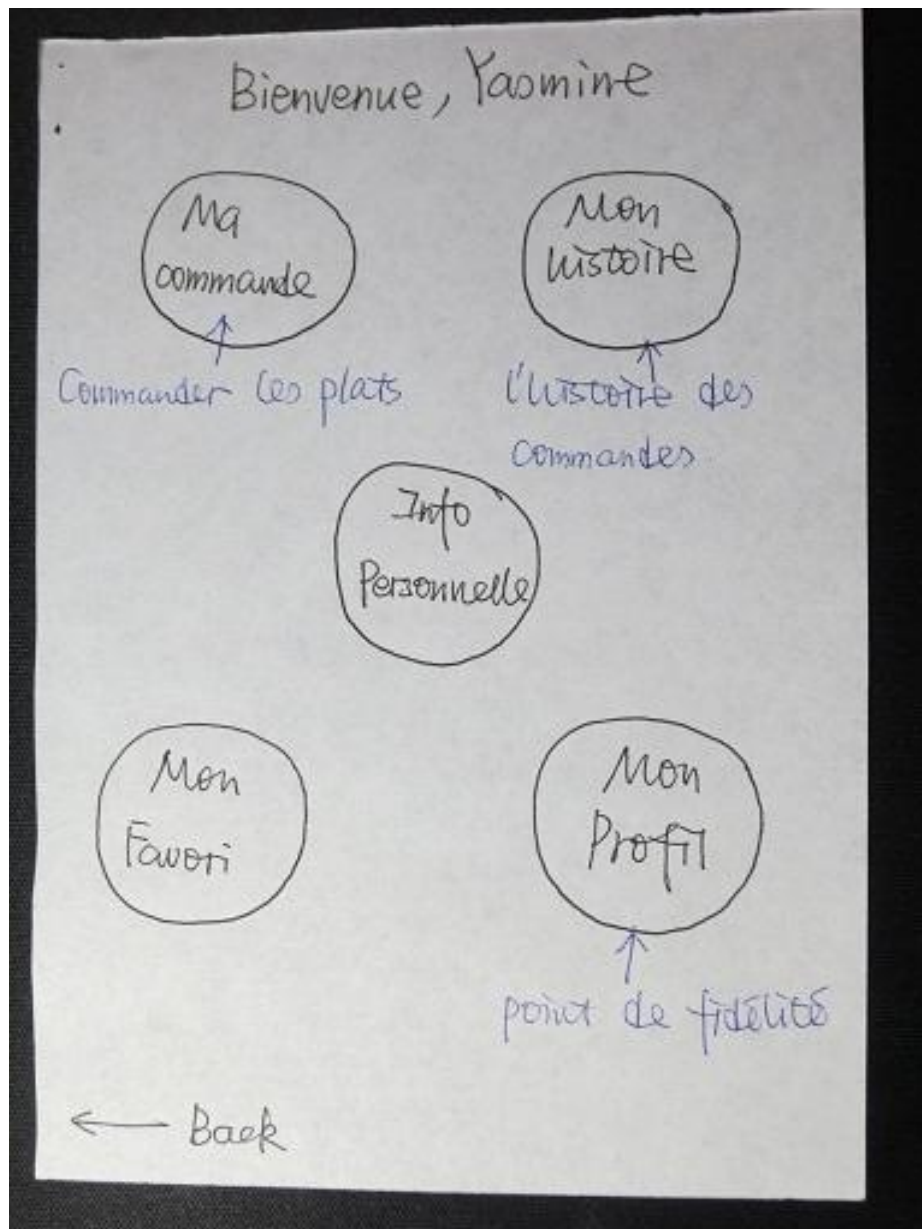 Bienvenue, Yasmine
Ma
commande
Mon
histoire
Commander les plats
l'histoire des
commandes
Info
Personnelle
Mon
Favori
Mon
Profil
point de fidélité
← Back